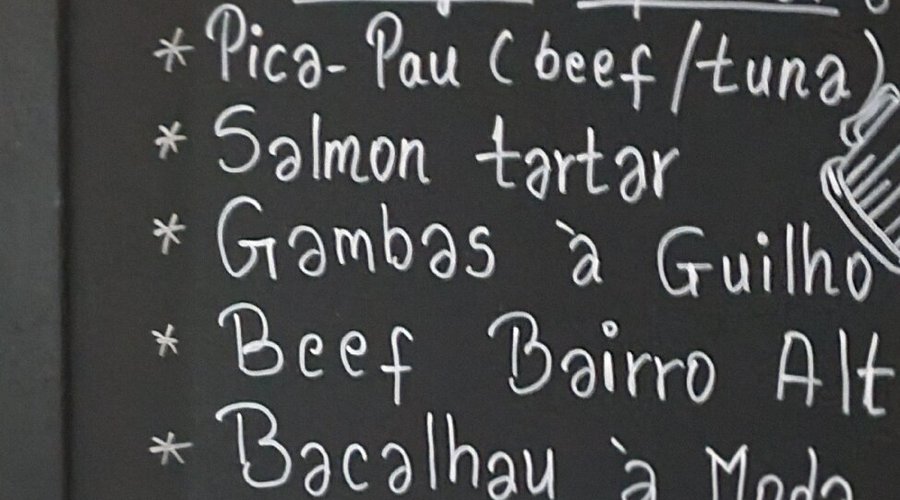 * Pica-Pau (beef/tuna)
* Salmon tartar
* Gambas à Guilho
* Beef Bairro Alt
* Bacalhau à Moda